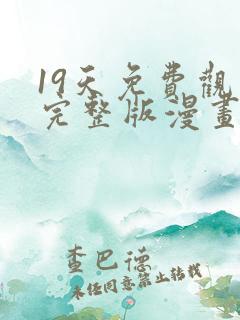 19天免費觀
完整版漫畫
查巴德
未经同意禁止转载